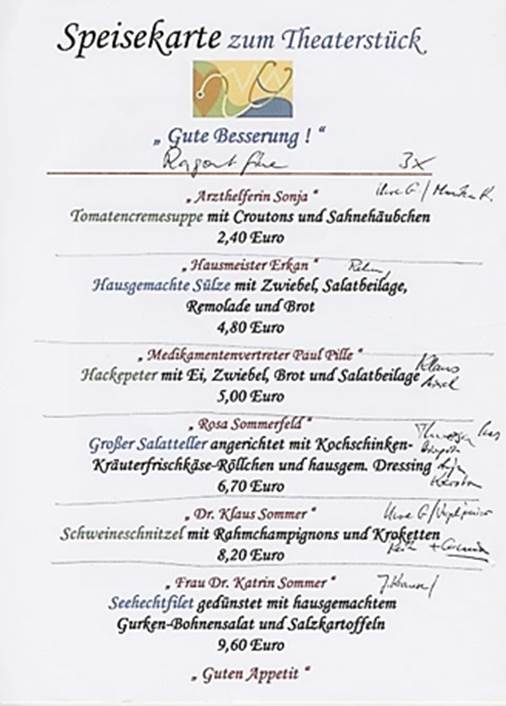 Speisekarte zum Theaterstück
„ Gute Besserung ! “
Ragout fine 3x
„ Arzthelferin Sonja “
Tomatencremesuppe mit Croutons und Sahnehäubchen
2,40 Euro
„ Hausmeister Erkan “
Hausgemachte Sülze mit Zwiebel, Salatbeilage,
Remolade und Brot
4,80 Euro
„ Medikamentenvertreter Paul Pille “ Klaus
Hackepeter mit Ei, Zwiebel, Brot und Salatbeilage
5,00 Euro
„ Rosa Sommerfeld “
Großer Salatteller angerichtet mit Kochschinken-
Kräuterfrischkäse-Röllchen und hausgem. Dressing
6,70 Euro
„ Dr. Klaus Sommer “
Schweineschnitzel mit Rahmchampignons und Kroketten
8,20 Euro
„ Frau Dr. Katrin Sommer “
Seehechtfilet gedünstet mit hausgemachtem
Gurken-Bohnensalat und Salzkartoffeln
9,60 Euro
„ Guten Appetit “